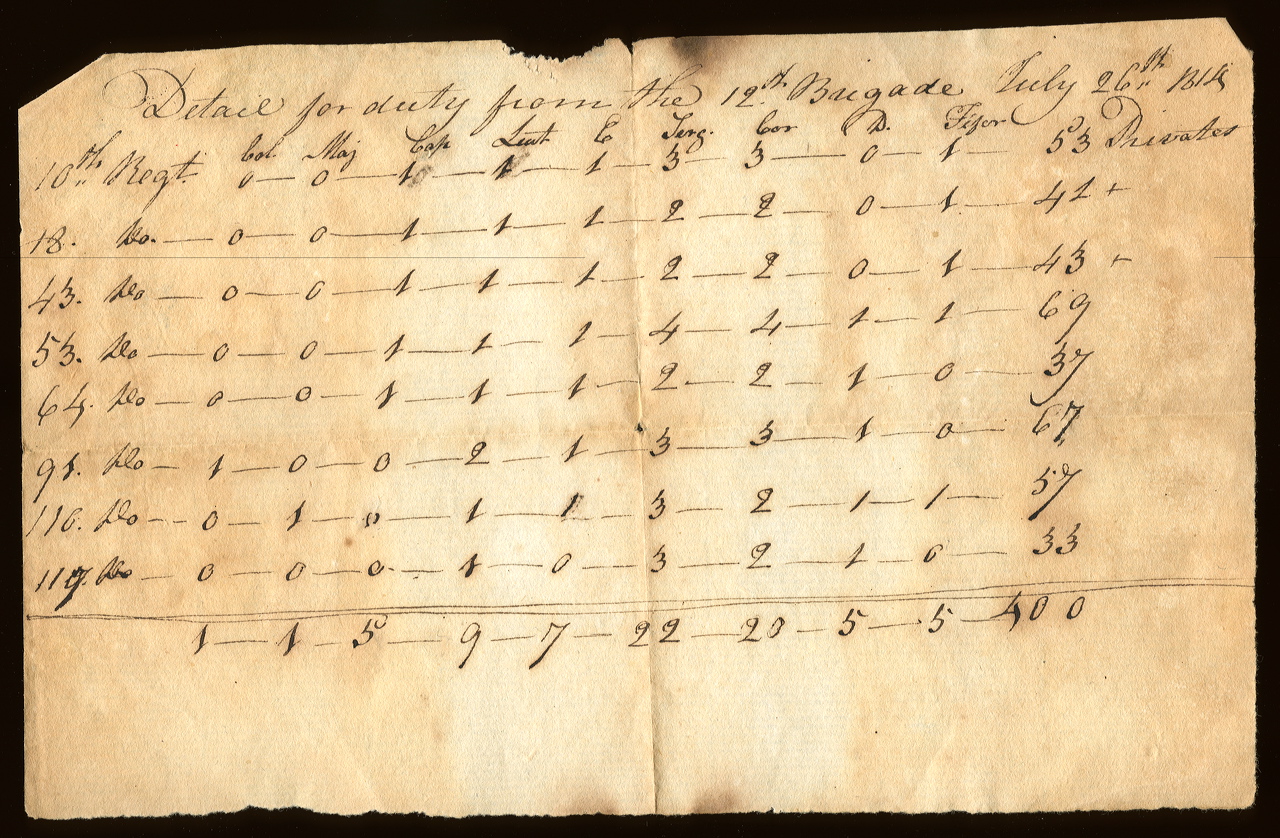 Detail for duty from the 12th Brigade July 26th 1814
Col. Maj Cap Lieut E Serg. Cor D. Fifer Privates
10th Regt. 0 — 0 — 1 — 1 — 1 — 3 — 3 — 0 — 1 — 53
18. Do. — 0 — 0 — 1 — 1 — 1 — 2 — 2 — 0 — 1 — 41 +
43. Do — 0 — 0 — 1 — 1 — 1 — 2 — 2 — 0 — 1 — 43 +
53. Do — 0 — 0 — 1 — 1 — 1 — 4 — 4 — 1 — 1 — 69
64. Do — 0 — 0 — 1 — 1 — 1 — 2 — 2 — 1 — 0 — 37
91. Do — 1 — 0 — 0 — 2 — 1 — 3 — 3 — 1 — 0 — 67
116. Do — 0 — 1 — 0 — 1 — 1 — 3 — 2 — 1 — 1 — 57
Do — 0 — 0 — 0 — 1 — 0 — 3 — 2 — 1 — 0 — 33
1 — 1 — 5 — 9 — 7 — 22 — 20 — 5 — 5 — 400